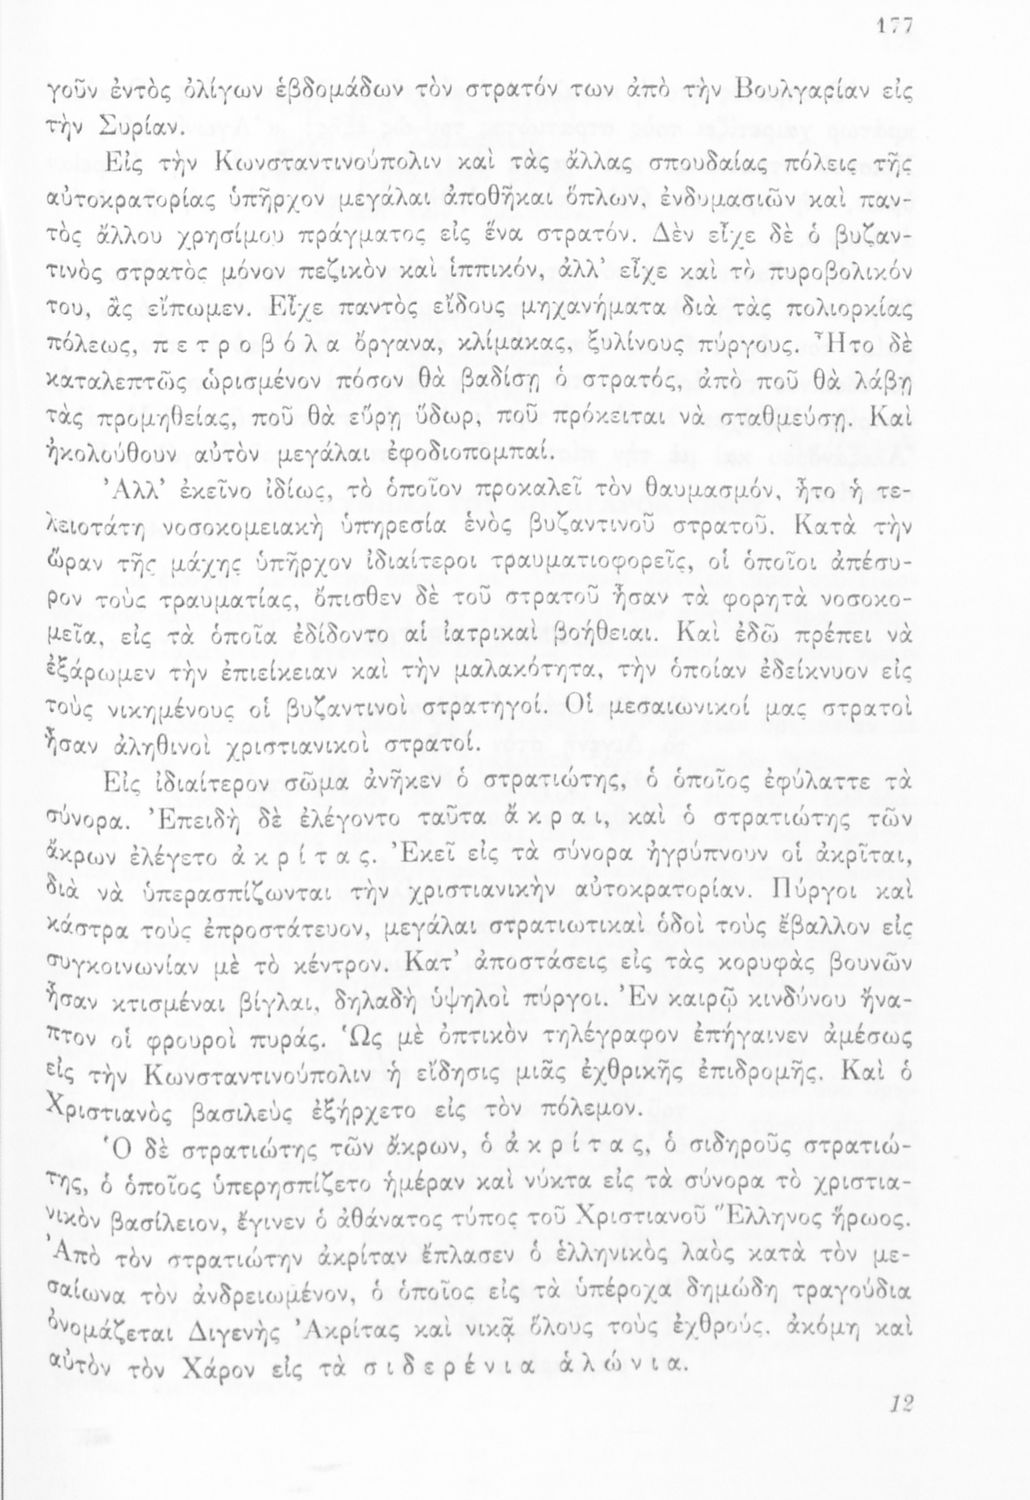 177
γοῦν ἐντὸς ὀλίγων ἑβδομάδων τὸν στρατόν των ἀπὸ τὴν Βουλγαρίαν εἰς
τὴν Συρίαν.
Εἰς τὴν Κωνσταντινούπολιν καὶ τὰς ἄλλας σπουδαίας πόλεις τῆς
αὐτοκρατορίας ὑπῆρχον μεγάλαι ἀποθῆκαι ὅπλων, ἐνδυμασιῶν καὶ παν-
τὸς ἄλλου χρησίμου πράγματος εἰς ἕνα στρατόν. Δὲν εἶχε δὲ ὁ βυζαν-
τινὸς στρατὸς μόνον πεζικὸν καὶ ἱππικόν, ἀλλ' εἶχε καὶ τὸ πυροβολικόν
του, ἂς εἴπωμεν. Εἶχε παντὸς εἴδους μηχανήματα διὰ τὰς πολιορκίας
πόλεως, π ε τ ρ ο β ό λ α ὄργανα, κλίμακας, ξυλίνους πύργους. Ἦτο δὲ
καταλεπτῶς ὡρισμένον πόσον θὰ βαδίσῃ ὁ στρατός, ἀπὸ ποῦ θὰ λάβῃ
τὰς προμηθείας, ποῦ θὰ εὕρῃ ὕδωρ, ποῦ πρόκειται νὰ σταθμεύσῃ. Καὶ
ἠκολούθουν αὐτὸν μεγάλαι ἐφοδιοπομπαί.
Ἀλλ' ἐκεῖνο ἰδίως, τὸ ὁποῖον προκαλεῖ τὸν θαυμασμόν, ἦτο ἡ τε-
λειοτάτη νοσοκομειακὴ ὑπηρεσία ἑνὸς βυζαντινοῦ στρατοῦ. Κατὰ τὴν
ὥραν τῆς μάχης ὑπῆρχον ἰδιαίτεροι τραυματιοφορεῖς, οἱ ὁποῖοι ἀπέσυ-
ρον τοὺς τραυματίας, ὄπισθεν δὲ τοῦ στρατοῦ ἦσαν τὰ φορητὰ νοσοκο-
μεῖα, εἰς τὰ ὁποῖα ἐδίδοντο αἱ ἰατρικαὶ βοήθειαι. Καὶ ἐδῶ πρέπει νὰ
ἐξάρωμεν τὴν ἐπιείκειαν καὶ τὴν μαλακότητα, τὴν ὁποίαν ἐδείκνυον εἰς
τοὺς νικημένους οἱ βυζαντινοὶ στρατηγοί. Οἱ μεσαιωνικοί μας στρατοὶ
ἦσαν ἀληθινοὶ χριστιανικοὶ στρατοί.
Εἰς ἰδιαίτερον σῶμα ἀνῆκεν ὁ στρατιώτης, ὁ ὁποῖος ἐφύλαττε τὰ
σύνορα. Ἐπειδὴ δὲ ἐλέγοντο ταῦτα ἄ κ ρ α ι, καὶ ὁ στρατιώτης τῶν
ἄκρων ἐλέγετο ἀ κ ρ ί τ α ς. Ἐκεῖ εἰς τὰ σύνορα ἠγρύπνουν οἱ ἀκρῖται,
διὰ νὰ ὑπερασπίζωνται τὴν χριστιανικὴν αὐτοκρατορίαν. Πύργοι καὶ
κάστρα τοὺς ἐπροστάτευον, μεγάλαι στρατιωτικαὶ ὁδοὶ τοὺς ἔβαλλον εἰς
συγκοινωνίαν μὲ τὸ κέντρον. Κατ' ἀποστάσεις εἰς τὰς κορυφὰς βουνῶν
ἦσαν κτισμέναι βίγλαι, δηλαδὴ ὑψηλοὶ πύργοι. Ἐν καιρῷ κινδύνου ἤνα-
πτον οἱ φρουροὶ πυράς. Ὡς μὲ ὀπτικὸν τηλέγραφον ἐπήγαινεν ἀμέσως
εἰς τὴν Κωνσταντινούπολιν ἡ εἴδησις μιᾶς ἐχθρικῆς ἐπιδρομῆς. Καὶ ὁ
Χριστιανὸς βασιλεὺς ἐξήρχετο εἰς τὸν πόλεμον.
Ὁ δὲ στρατιώτης τῶν ἄκρων, ὁ ἀ κ ρ ί τ α ς, ὁ σιδηροῦς στρατιώ-
της, ὁ ὁποῖος ὑπερησπίζετο ἡμέραν καὶ νύκτα εἰς τὰ σύνορα τὸ χριστια-
νικὸν βασίλειον, ἔγινεν ὁ ἀθάνατος τύπος τοῦ Χριστιανοῦ Ἕλληνος ἥρωος.
Ἀπὸ τὸν στρατιώτην ἀκρίταν ἔπλασεν ὁ ἑλληνικὸς λαὸς κατὰ τὸν με-
σαίωνα τὸν ἀνδρειωμένον, ὁ ὁποῖος εἰς τὰ ὑπέροχα δημώδη τραγούδια
ὀνομάζεται Διγενὴς Ἀκρίτας καὶ νικᾷ ὅλους τοὺς ἐχθρούς, ἀκόμη καὶ
αὐτὸν τὸν Χάρον εἰς τὰ σ ι δ ε ρ έ ν ι α ἁ λ ώ ν ι α.
12